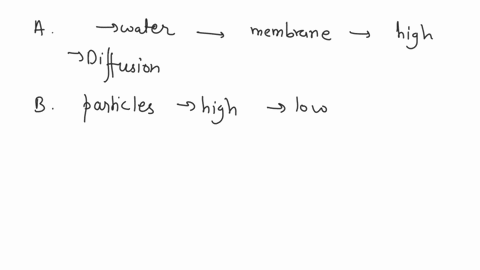 A. → water → membrane → high
→ Diffusion
B. particles → high → low